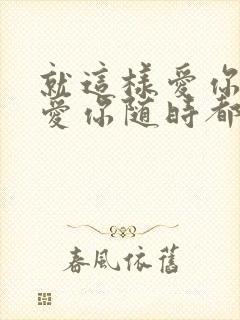 就這樣愛你
愛你隨時都
春風依舊